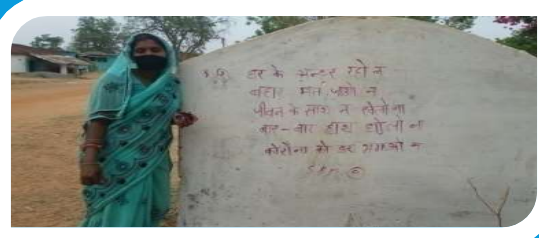 घर के अन्दर रहो न
बाहर मत जाओ न
जीवन के साथ न खेलो ना
बार-बार हाथ धोलो ना
कोरोना को डर भगाओ न